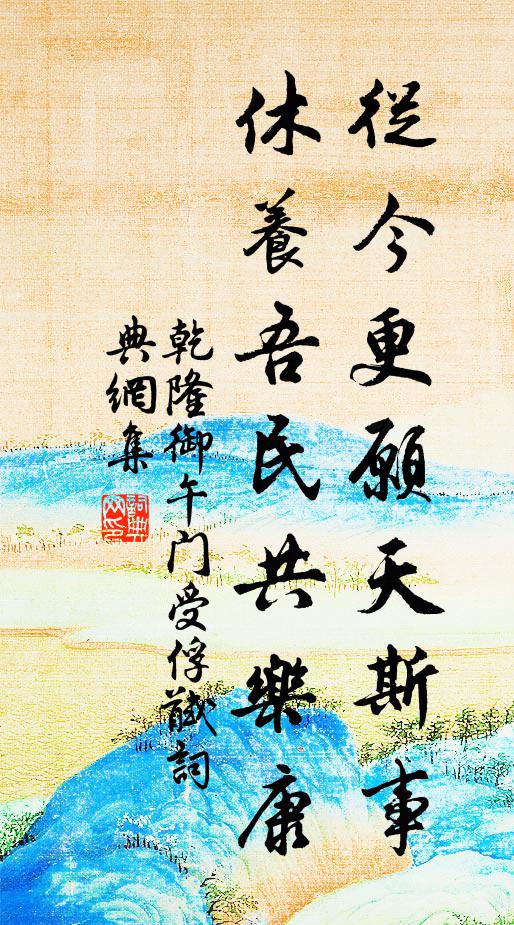 從今更願天斯事
休養吾民共樂康
乾隆御午门受俘馘詞
典網集
詞典
网印